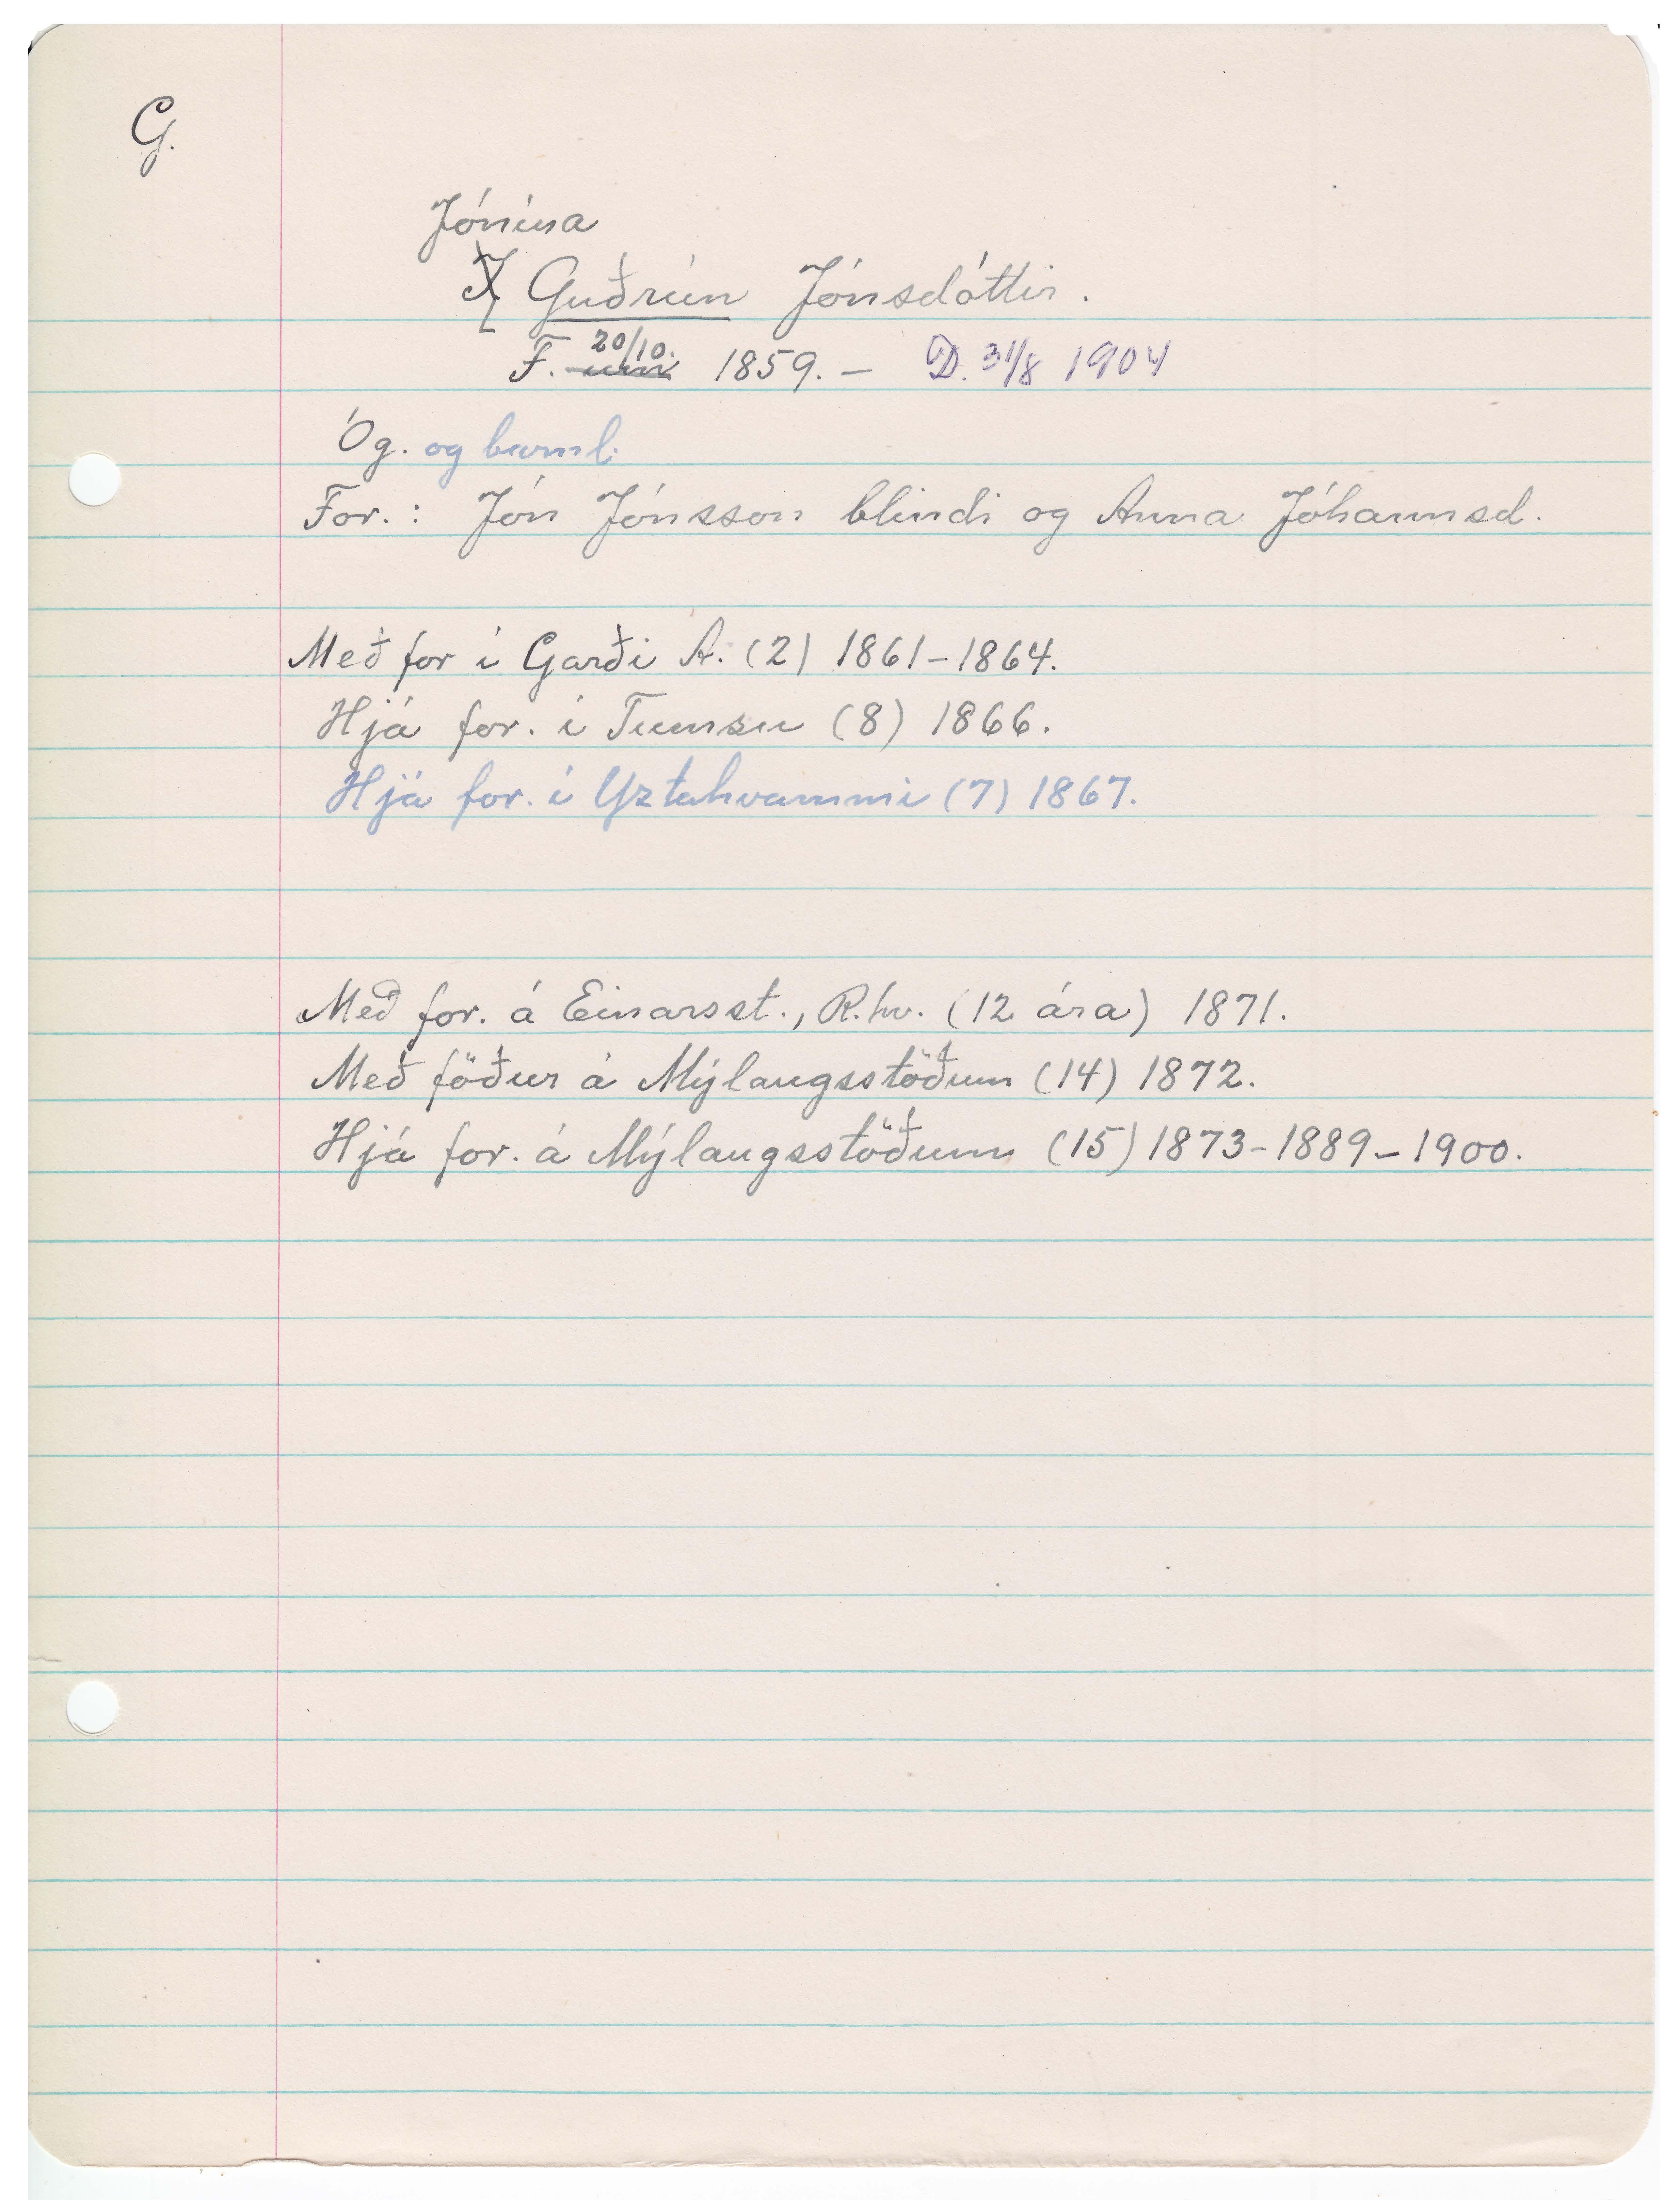 G.
Jónína
J Guðrún Jónsdóttir.
F. um 20/10. 1859. – D. 31/8 1904
Óg. og barnl.
For.: Jón Jónsson blindi og Anna Jóhannsd.
Með for í Garði A. (2) 1861–1864.
Hjá for. í Tumsu (8) 1866.
Hjá for. í Yztahvammi (7) 1867.
Með for. á Einarsst., R.hv. (12 ára) 1871.
Með föður á Mýlaugsstöðum (14) 1872.
Hjá for. á Mýlaugsstöðum (15) 1873–1889–1900.